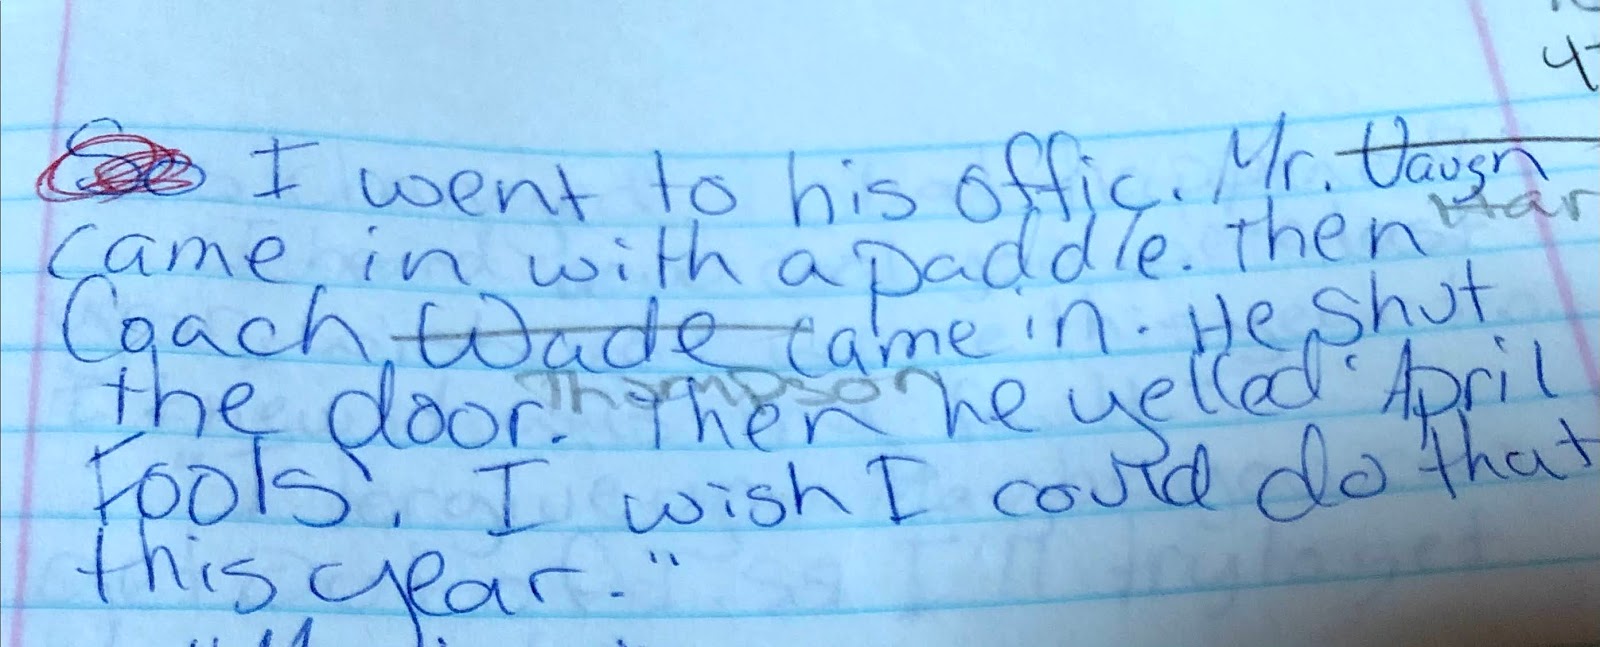 I went to his offic. Mr. Vaugn
Har
came in with a paddle. Then
Coach Wade came in. He shut
Thompson
the door. Then he yelled 'April
Fools'. I wish I could do that
this year."